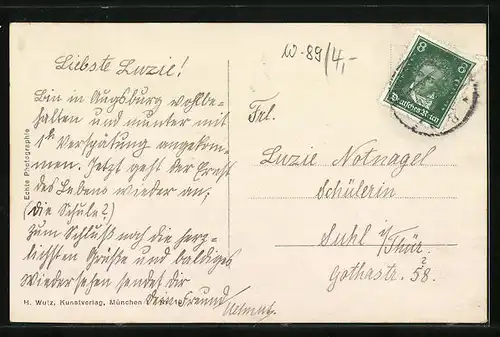 Liebste Luzie!
Bin in Augsburg wohlbe-
halten und munter mit
1 Verspätung angekom-
men. Jetzt geht der Ernst
des Lebens wieder an,
(die Schule?)
Zum Schluß noch die herz-
lichsten Grüße und baldiges
Wiedersehen sendet dir
dein Freund
Helmut.
Echte Photographie
H. Wutz, Kunstverlag, München
10-89/4,-
8 8
Deutsches Reich
Frl.
Luzie Notnagel
Schülerin
Suhl i/Thür.
Gothastr. 58.
2